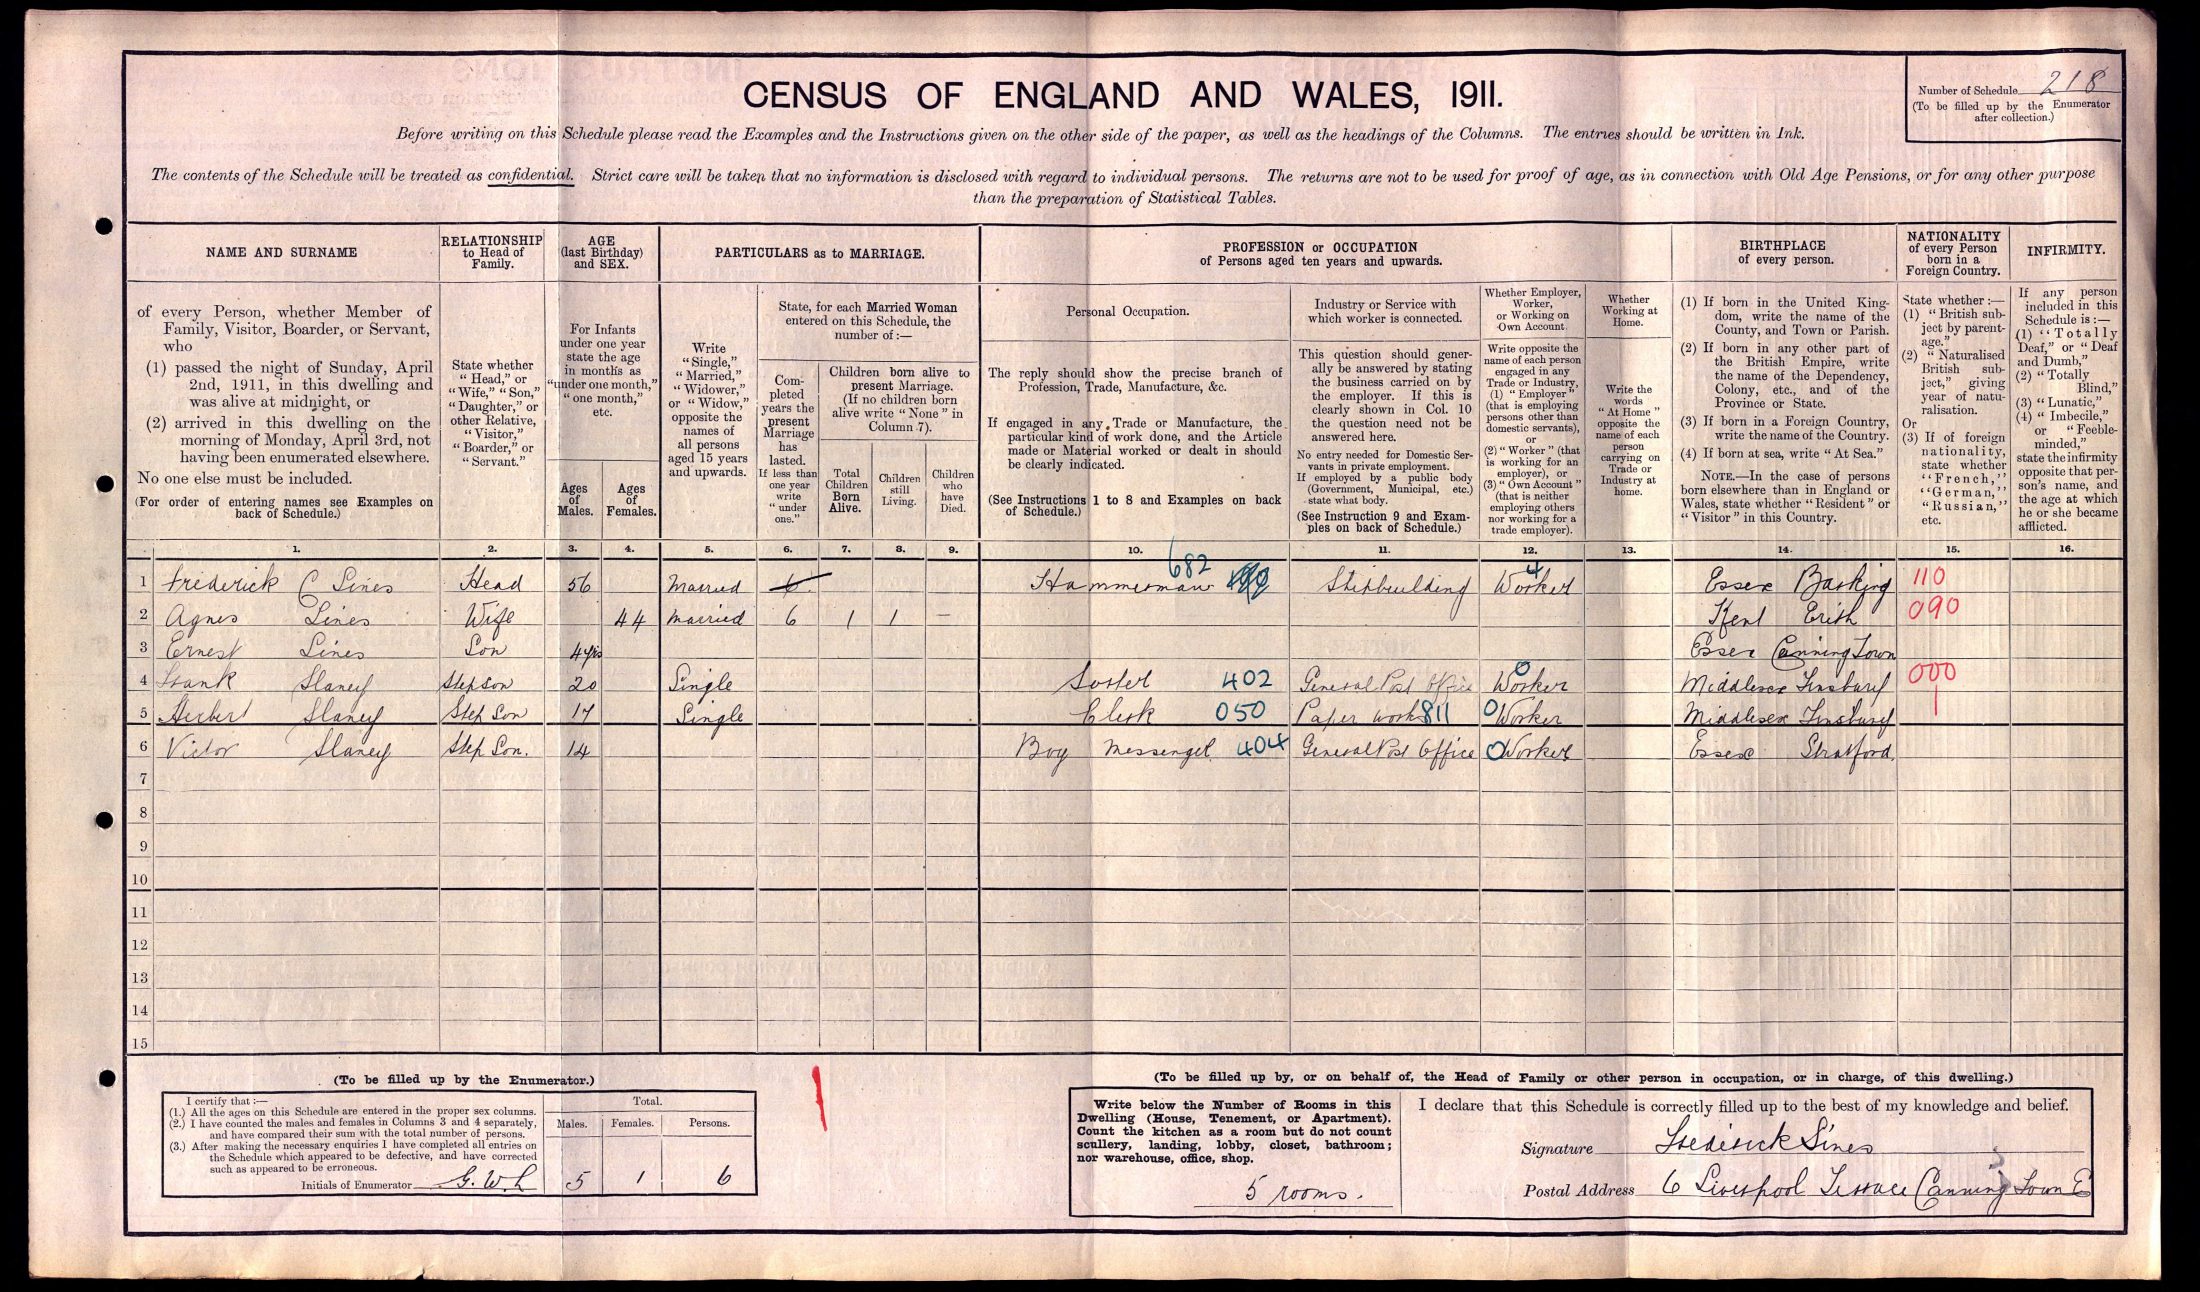 CENSUS OF ENGLAND AND WALES, 1911.
Number of Schedule 218
(To be filled up by the Enumerator
after collection.)
Before writing on this Schedule please read the Examples and the Instructions given on the other side of the paper, as well as the headings of the Columns. The entries should be written in Ink.
The contents of the Schedule will be treated as confidential. Strict care will be taken that no information is disclosed with regard to individual persons. The returns are not to be used for proof of age, as in connection with Old Age Pensions, or for any other purpose
than the preparation of Statistical Tables.
NAME AND SURNAME
of every Person, whether Member of
Family, Visitor, Boarder, or Servant,
who
(1) passed the night of Sunday, April
2nd, 1911, in this dwelling and
was alive at midnight, or
(2) arrived in this dwelling on the
morning of Monday, April 3rd, not
having been enumerated elsewhere.
No one else must be included.
(For order of entering names see Examples on
back of Schedule.)
RELATIONSHIP
to Head of
Family.
State whether
"Head," or
"Wife," "Son,"
"Daughter," or
other Relative,
"Visitor,"
"Boarder," or
"Servant."
AGE
(last Birthday)
and SEX.
For Infants
under one year
state the age
in months as
"under one month,"
"one month,"
etc.
Ages
of
Males.
Ages
of
Females.
PARTICULARS as to MARRIAGE.
Write
"Single,"
"Married,"
"Widower,"
or "Widow,"
opposite the
names of
all persons
aged 15 years
and upwards.
State, for each Married Woman
entered on this Schedule, the
number of:—
Com-
pleted
years the
present
Marriage
has
lasted.
If less than
one year
write
"under
one."
Children born alive to
present Marriage.
(If no children born
alive write "None" in
Column 7).
Total
Children
Born
Alive.
Children
still
Living.
Children
who
have
Died.
PROFESSION or OCCUPATION
of Persons aged ten years and upwards.
Personal Occupation.
The reply should show the precise branch of
Profession, Trade, Manufacture, &c.
If engaged in any Trade or Manufacture, the
particular kind of work done, and the Article
made or Material worked or dealt in should
be clearly indicated.
(See Instructions 1 to 8 and Examples on back
of Schedule.)
Industry or Service with
which worker is connected.
This question should gener-
ally be answered by stating
the business carried on by
the employer. If this is
clearly shown in Col. 10
the question need not be
answered here.
No entry needed for Domestic Ser-
vants in private employment.
If employed by a public body
(Government, Municipal, etc.)
state what body.
(See Instruction 9 and Exam-
ples on back of Schedule.)
Whether Employer,
Worker,
or Working on
Own Account.
Write opposite the
name of each person
engaged in any
Trade or Industry,
(1) "Employer"
(that is employing
persons other than
domestic servants),
or
(2) "Worker" (that
is working for an
employer), or
(3) "Own Account"
(that is neither
employing others
nor working for a
trade employer).
Whether
Working at
Home.
Write the
words
"At Home"
opposite the
name of each
person
carrying on
Trade or
Industry at
home.
BIRTHPLACE
of every person.
(1) If born in the United King-
dom, write the name of the
County, and Town or Parish.
(2) If born in any other part of
the British Empire, write
the name of the Dependency,
Colony, etc., and of the
Province or State.
(3) If born in a Foreign Country,
write the name of the Country.
(4) If born at sea, write "At Sea."
NOTE.—In the case of persons
born elsewhere than in England or
Wales, state whether "Resident" or
"Visitor" in this Country.
NATIONALITY
of every Person
born in a
Foreign Country.
State whether:—
(1) "British sub-
ject by parent-
age."
(2) "Naturalised
British sub-
ject," giving
year of natu-
ralisation.
Or
(3) If of foreign
nationality,
state whether
"French,"
"German,"
"Russian,"
etc.
INFIRMITY.
If any person
included in this
Schedule is:—
(1) "Totally
Deaf," or "Deaf
and Dumb,"
(2) "Totally
Blind,"
(3) "Lunatic,"
(4) "Imbecile,"
or "Feeble-
minded,"
state the infirmity
opposite that per-
son's name, and
the age at which
he or she became
afflicted.
1. 2. 3. 4. 5. 6. 7. 8. 9. 10. 11. 12. 13. 14. 15. 16.
1 Frederick C Lines Head 56 Married 6 Hammerman 682 Shipbuilding Worker 4 Essex Barking 110
2 Agnes Lines Wife 44 Married 6 1 1 — Kent Erith 090
3 Ernest Lines Son 4 yrs Essex Canning Town
4 Frank Slaney Stepson 20 Single Sorter 402 General Post Office Worker 0 Middlesex Finsbury 000
5 Herbert Slaney Step Son 17 Single Clerk 050 Paper work 811 0 Worker Middlesex Finsbury 1
6 Victor Slaney Step Son. 14 Boy Messenger 404 General Post Office 0 Worker Essex Stratford.
7
8
9
10
11
12
13
14
15
(To be filled up by the Enumerator.)
I certify that:—
(1.) All the ages on this Schedule are entered in the proper sex columns.
(2.) I have counted the males and females in Columns 3 and 4 separately,
and have compared their sum with the total number of persons.
(3.) After making the necessary enquiries I have completed all entries on
the Schedule which appeared to be defective, and have corrected
such as appeared to be erroneous.
Initials of Enumerator G.W.L
Total.
Males. Females. Persons.
5 1 6
(To be filled up by, or on behalf of, the Head of Family or other person in occupation, or in charge, of this dwelling.)
Write below the Number of Rooms in this
Dwelling (House, Tenement, or Apartment).
Count the kitchen as a room but do not count
scullery, landing, lobby, closet, bathroom;
nor warehouse, office, shop.
5 rooms.
I declare that this Schedule is correctly filled up to the best of my knowledge and belief.
Signature Frederick Lines
Postal Address 6 Liverpool Terrace Canning Town E